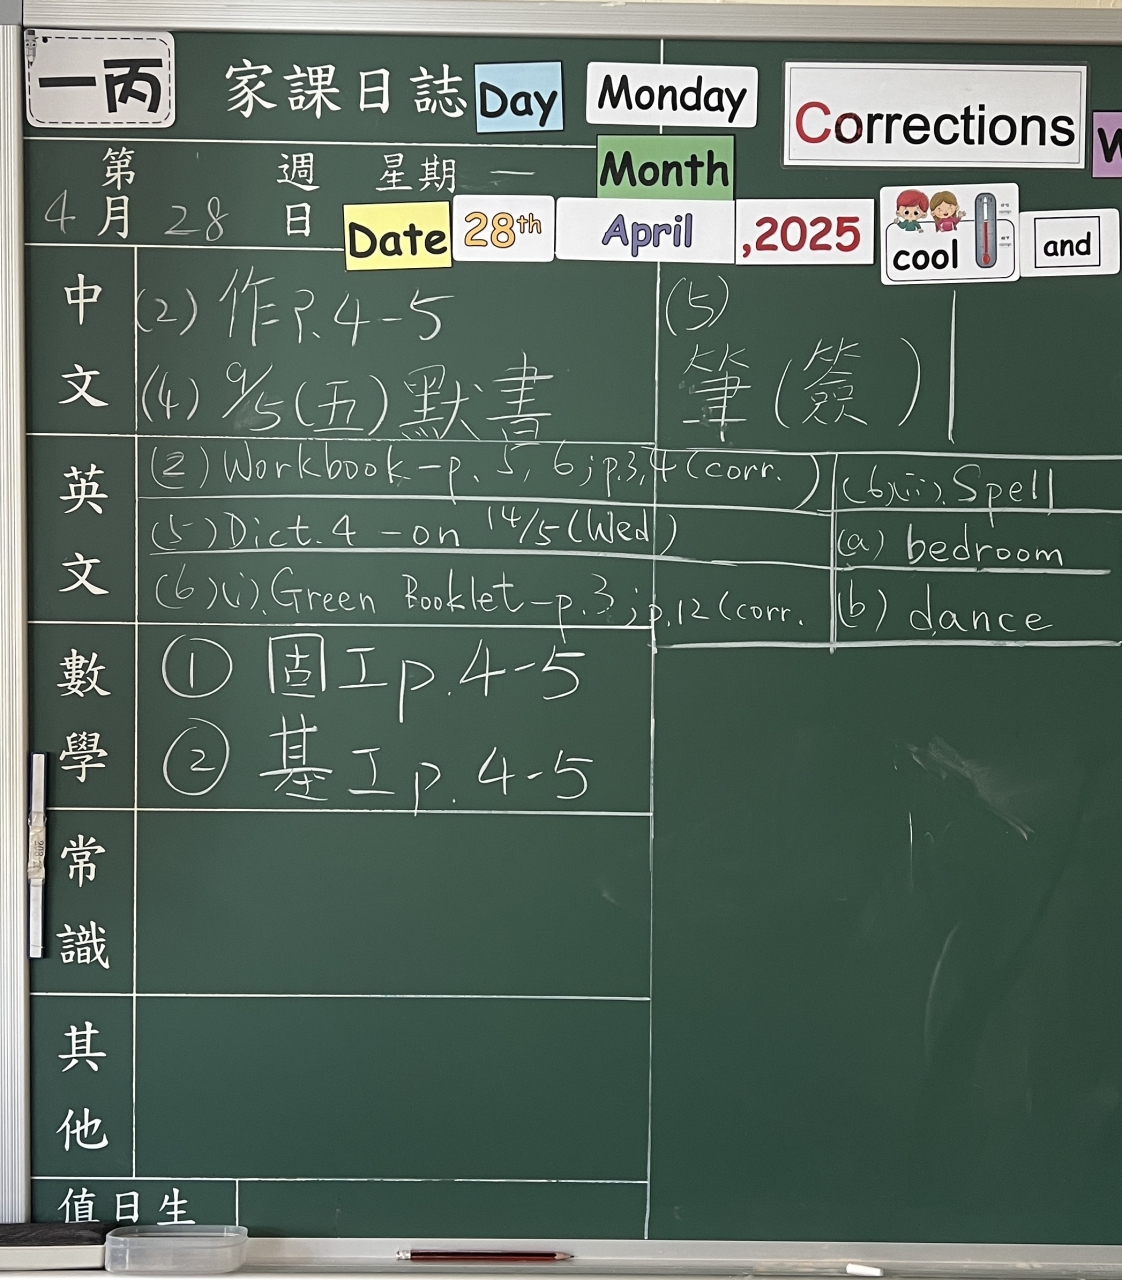 一丙 家課日誌 Day Monday Corrections
第 週 星期 一 Month
4 月 28 日 Date 28th April ,2025 cool and
中文
(2) 作 P.4-5
(4) 9/5 (五) 默書
(5)
筆 (簽)
英文
(2) Workbook - p. 5, 6; p.3,4 (corr.)
(5) Dict. 4 - on 14/5 (Wed)
(6)(i). Green Booklet - p.3; p.12 (corr.
(6)(ii). Spell
(a) bedroom
(b) dance
數學
① 固工 p.4-5
② 基工 p.4-5
常識
其他
值日生